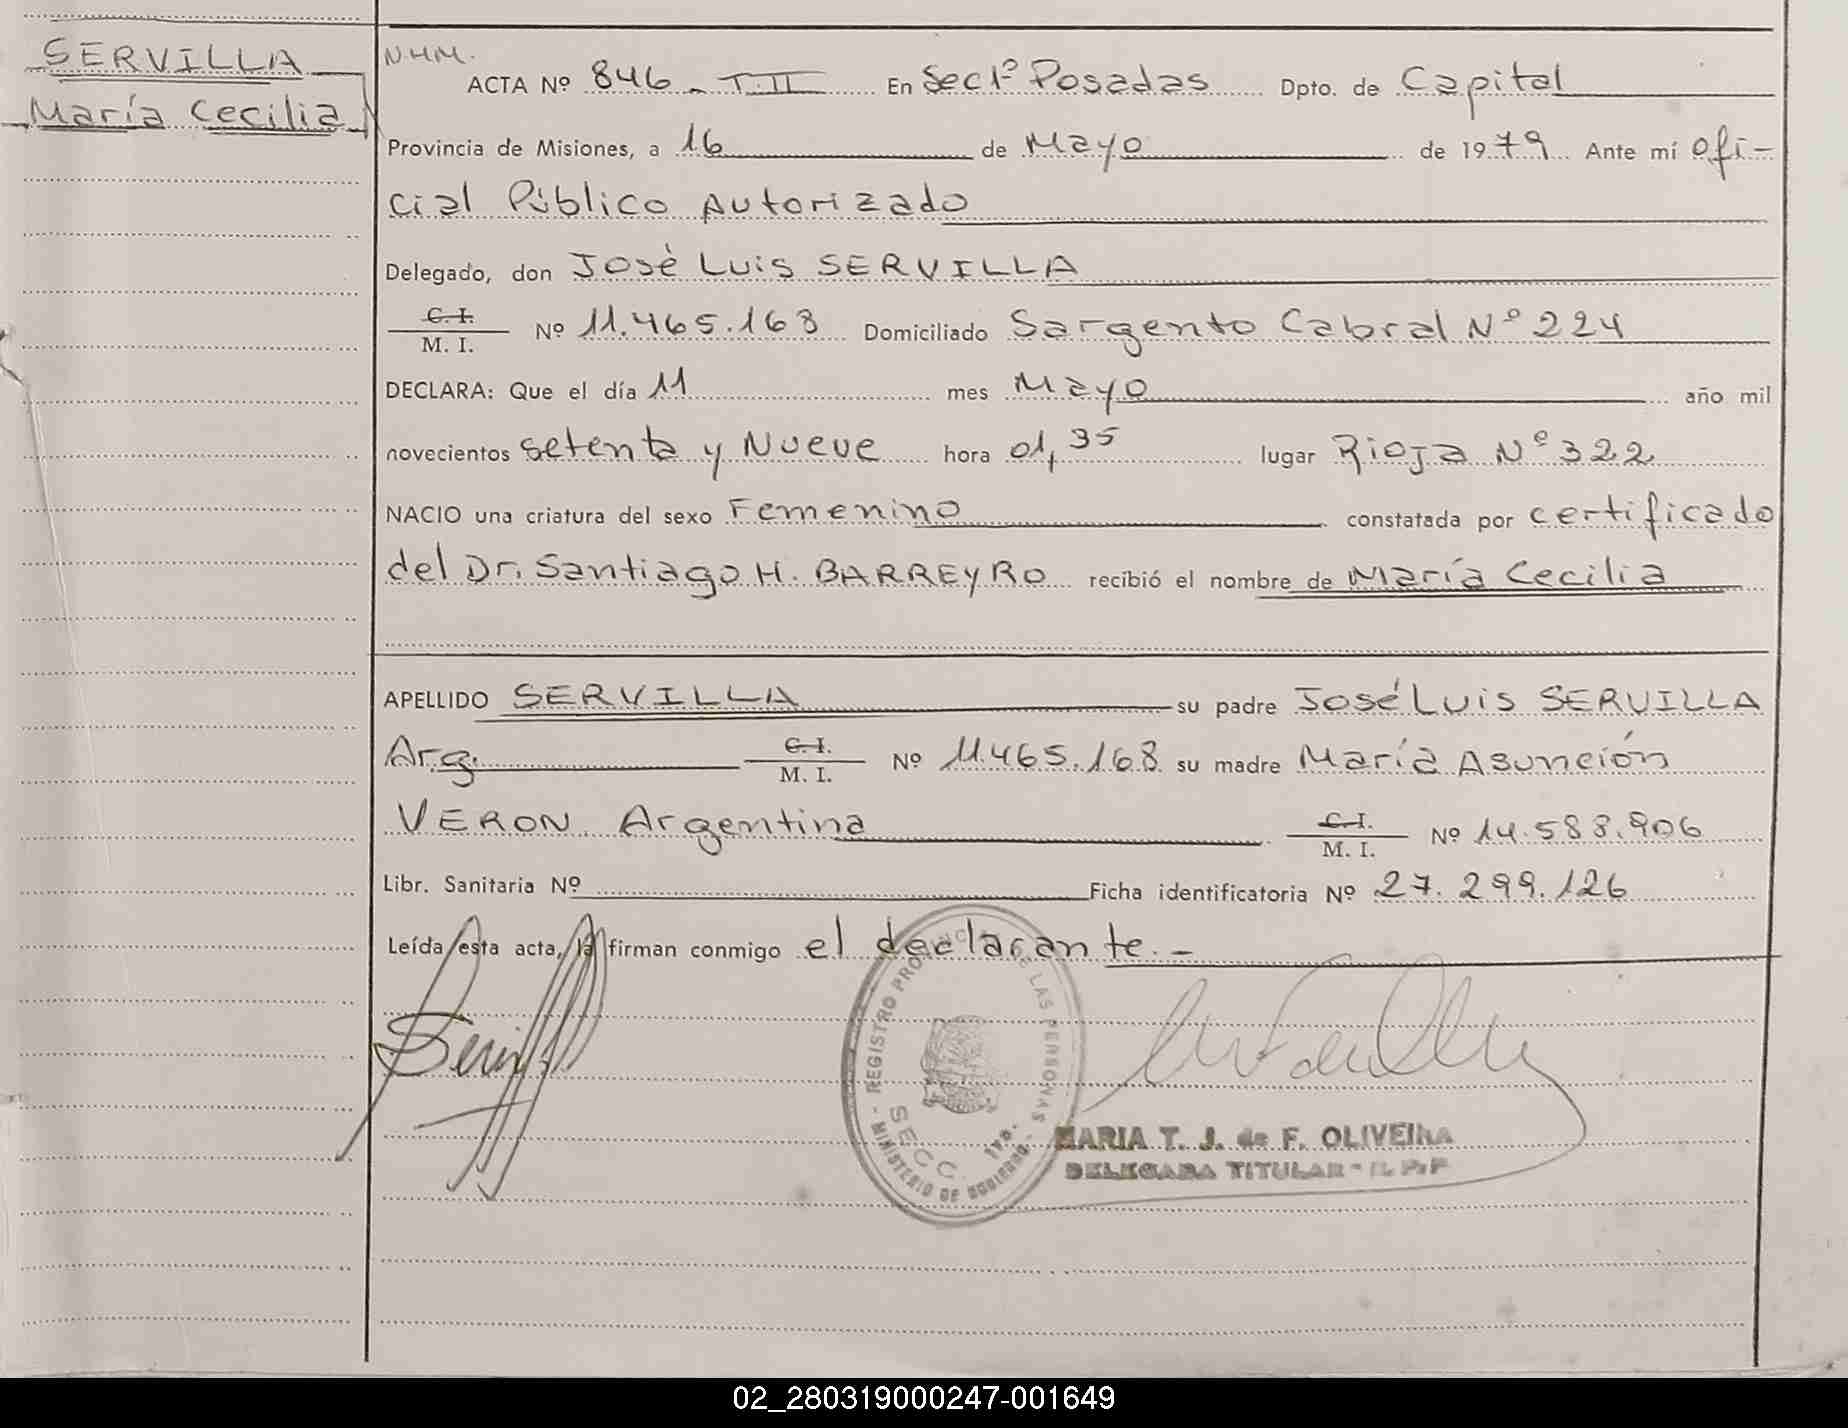 SERVILLA
María Cecilia
N.H.M.
ACTA Nº 846 - T.II En Sec 1ª Posadas Dpto. de Capital
Provincia de Misiones, a 16 de Mayo de 1979 Ante mí ofi-
cial Público Autorizado
Delegado, don José Luis SERVILLA
C. I.
M. I. Nº 11.465.168 Domiciliado Sargento Cabral Nº 224
DECLARA: Que el día 11 mes Mayo año mil
novecientos setenta y Nueve hora 01,35 lugar Rioja Nº 322
NACIO una criatura del sexo Femenino constatada por certificado
del Dr. Santiago H. BARREYRO recibió el nombre de María Cecilia
APELLIDO SERVILLA su padre José Luis SERVILLA
Arg. C. I.
M. I. Nº 11.465.168 su madre María Asunción
VERON Argentina C. I.
M. I. Nº 14.588.906
Libr. Sanitaria Nº Ficha identificatoria Nº 27.299.126
Leída esta acta, la firman conmigo el declarante.-
REGISTRO PROVINCIAL DE LAS PERSONAS
SECC. 1ra.
MINISTERIO DE GOBIERNO
MARIA T. J. de F. OLIVEIRA
DELEGADA TITULAR - R. P. P.
02_280319000247-001649